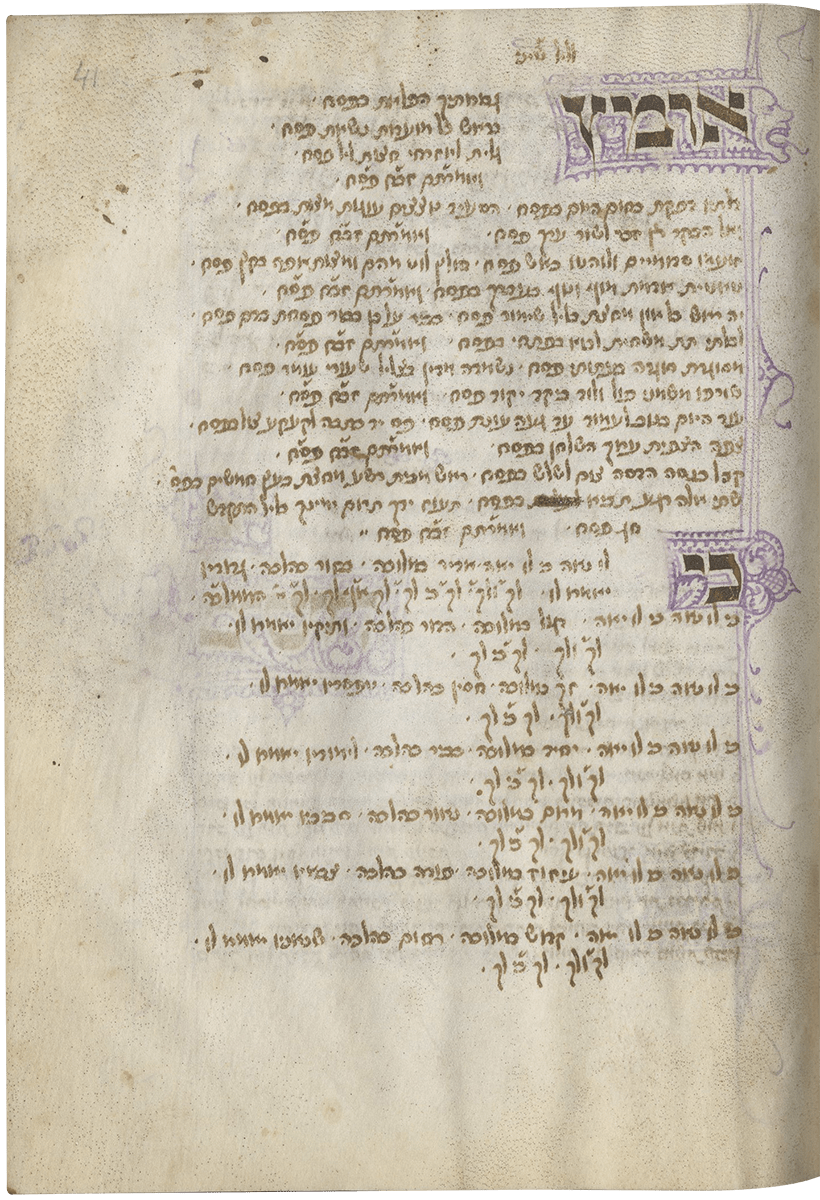 וליל שיני
אומץ
גבורותיך הפלאת בפסח ·
בראש כל מועדות נשאת פסח ·
גלית לאזרחי חצות ליל פסח ·
ואמרתם זבח פסח ·
דלתיו דפקת כחום היום בפסח · הסעיד נוצצים עוגות מצות בפסח ·
ואל הבקר רץ זכר לשור ערך פסח · ואמרתם זבח פסח ·
זועמו סדומיים ולוהטו באש פסח · חולץ לוט מהם ומצות אפה בקץ פסח ·
טיטית אדמת מוף ונוף בעברך בפסח · ואמרתם זבח פסח ·
יה ראש כל און מחצת בליל שימור פסח · כביר על בן בכור פסחת בדם פסח ·
לבלתי תת משחית לבוא בפתחי בפסח · ואמרתם זבח פסח ·
מסוגרת סוגרה בעתותי פסח · נשמדה מדין בצליל שעורי עומר פסח ·
שורפו משמני פול ולוד ביקד יקוד פסח · ואמרתם זבח פסח ·
עוד היום בנוב לעמוד עד געה עונת פסח · פס יד כתבה לקעקע צול בפסח ·
צפה הצפית ערוך השלחן בפסח · ואמרתם זבח פסח ·
קהל כנסה הדסה צום לשלש בפסח · ראש מבית רשע מחצת בעץ חמשים בפס ·
שתי אלה רגע תביא בפסח · תעוז ידך תרום ימינך כליל התקדש
חג פסח · ואמרתם זבח פסח ·
כי
לו נאה כי לו יאה אדיר במלוכה · בחור כהלכה · גדודיו
יאמרו לו · לך ולך · לך כי לך · לך אף לך · לך יי הממלכה ·
כי לו נאה כי לו יאה · דגול במלוכה · הדור כהלכה · ותיקיו יאמרו לו ·
לך ולך · לך כי לך ·
כי לו נאה כי לו יאה · זך במלוכה · חסין כהלכה · טפסריו יאמרו לו ·
לך ולך · לך כי לך ·
כי לו נאה כי לו יאה · יחיד במלוכה · כביר כהלכה · לימודיו יאמרו לו ·
לך ולך · לך כי לך ·
כי לו נאה כי לו יאה · מרום במלוכה · נורא כהלכה · סביביו יאמרו לו ·
לך ולך · לך כי לך ·
כי לו נאה כי לו יאה · במלוכה · פודה כהלכה · צבאיו יאמרו לו ·
לך ולך · לך כי לך ·
כי לו נאה כי לו יאה · קדוש במלוכה · רחום כהלכה · שנאניו יאמרו לו ·
לך ולך · לך כי לך ·
41